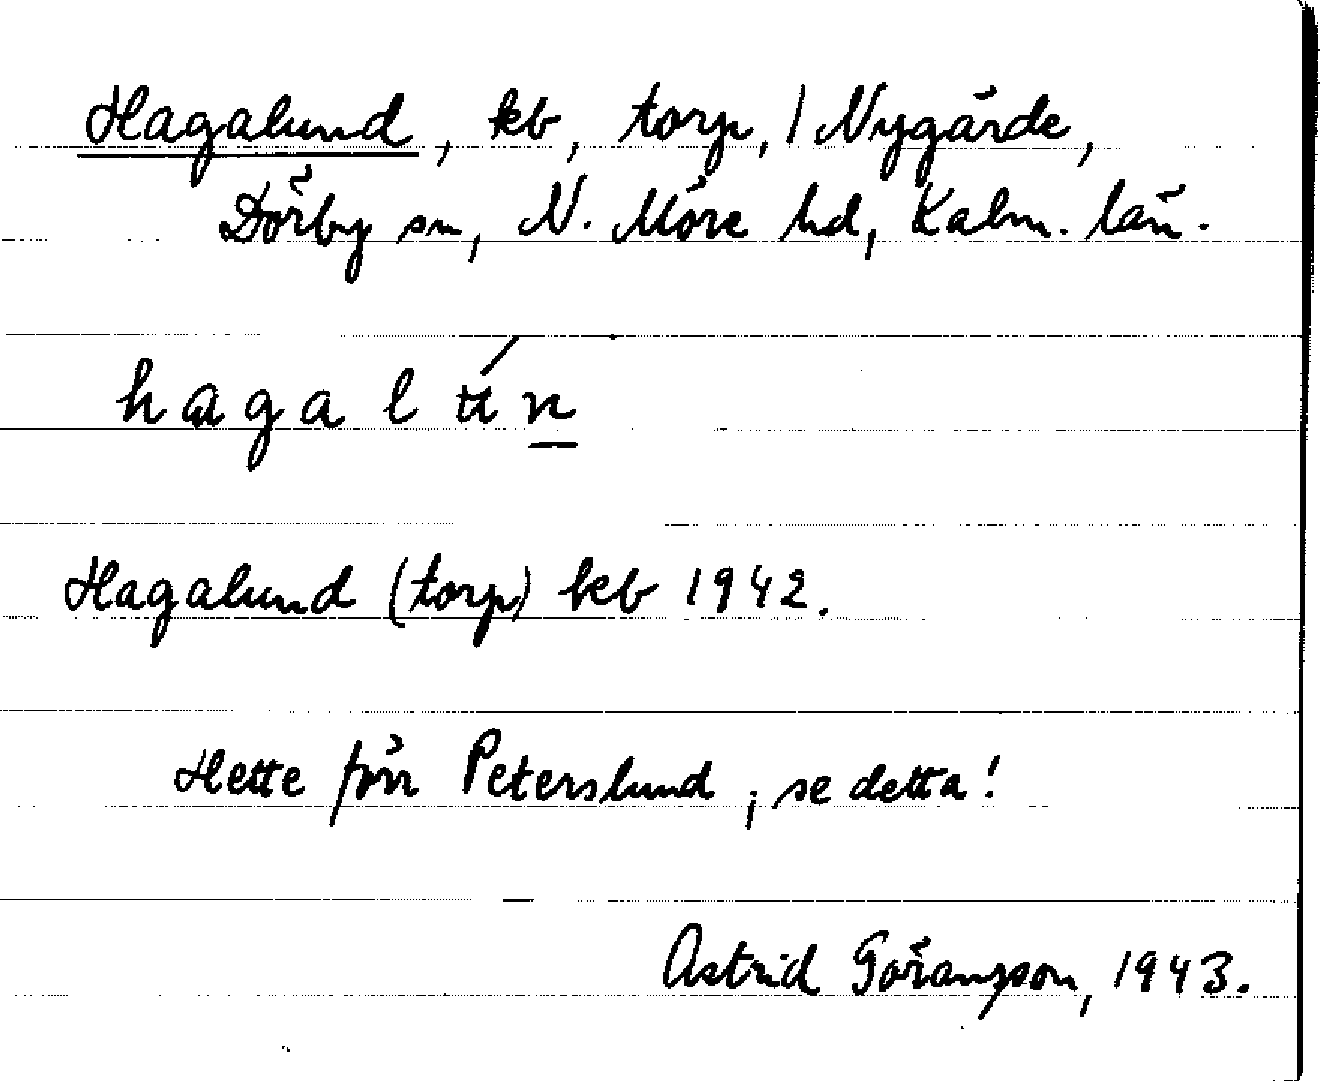 Hagalund, kb, torp, / Nygärde,
Dörby sn, N. Möre hd, Kalm. län.
hagalún
Hagalund (torp) kb 1942.
Hette förr Peterslund, se detta!
Astrid Göransson, 1943.